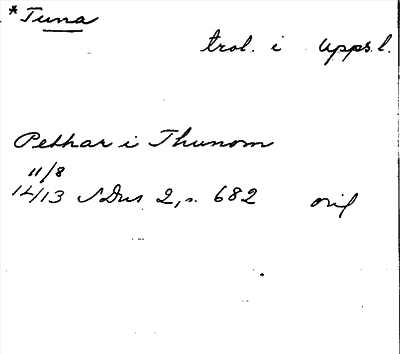 *Tuna
trol. i Upps.l.
Pethar i Thunom
11/8
1413 SDns 2, s. 682 orig